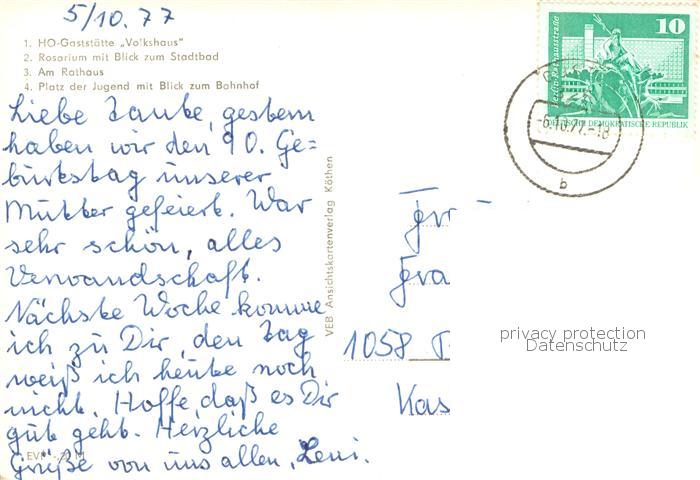 5/10.77
1. HO-Gaststätte „Volkshaus"
2. Rosarium mit Blick zum Stadtbad
3. Am Rathaus
4. Platz der Jugend mit Blick zum Bahnhof
Liebe Tante, gestern
haben wir den 90. Ge=
burtstag unserer
Mutter gefeiert. War
sehr schön, alles
Verwandschaft.
Nächste Woche komme
ich zu Dir, den Tag
weiß ich heute noch
nicht. Hoffe, daß es Dir
gut geht. Herzliche
Grüße von uns allen, Leni.
VEB Ansichtskartenverlag Köthen
10
Berlin-Rathausstraße
DEUTSCHE DEMOKRATISCHE REPUBLIK
-6.10.77.-18
b
Fra
1058
Kas
privacy protection
Datenschutz